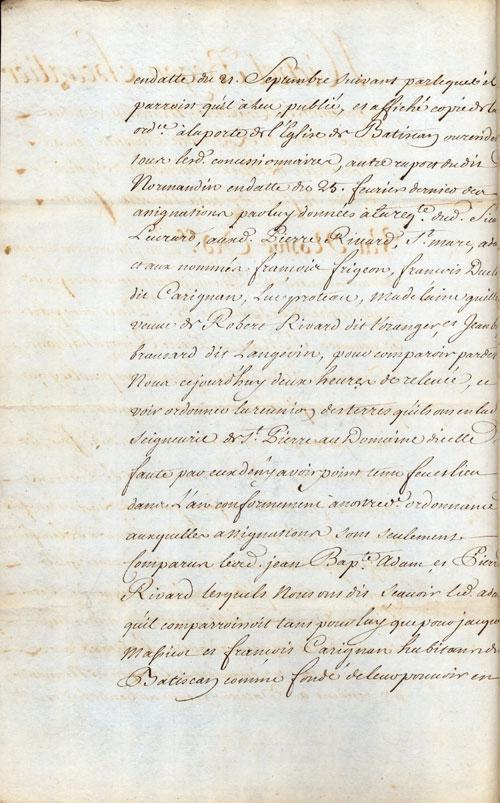 endatte du 21. Septembre suivant par lequel il
parroist qu'il a leu, publié, et affiché copie de la
ord.ce à la porte de l'Eglise de Batiscan ou rendu
tous lesd. concessionnaires, autre raport du dit
Normandin endatte du 25. fevrier dernier des
assignations par luy données à la req.te dud. Sieur
Levrard, aud. Pierre Rivard S.t marc, ada
et aux nommés françois frigeon, françois Duclo
dit Carignan, Luc proteau, Madelaine
veuve de Robert Rivard dit Loranger, et Jean
brousard dit Langevin, pour comparoir pardev
Nous cejourdhuy deux heures de relevée, et
voir ordonner la reunion des terres quils ont en lad
Seigneurie de S.t Pierre au Domaine d'icelle
faute par eux d'en y avoir point tenu feu et lieu
dans L'an conformement à nostred. ordonnance
auxquelles assignations sont seulement
Comparus lesd. jean Bap.te Adam, et Pierr
Rivard lesquels Nous ont dit Scavoir led. ada
qu'il comparroissoit tant pour luy que pour jacque
Massicot et françois Carignan habitans de
Batiscan comme fondé de leur pouvoir en